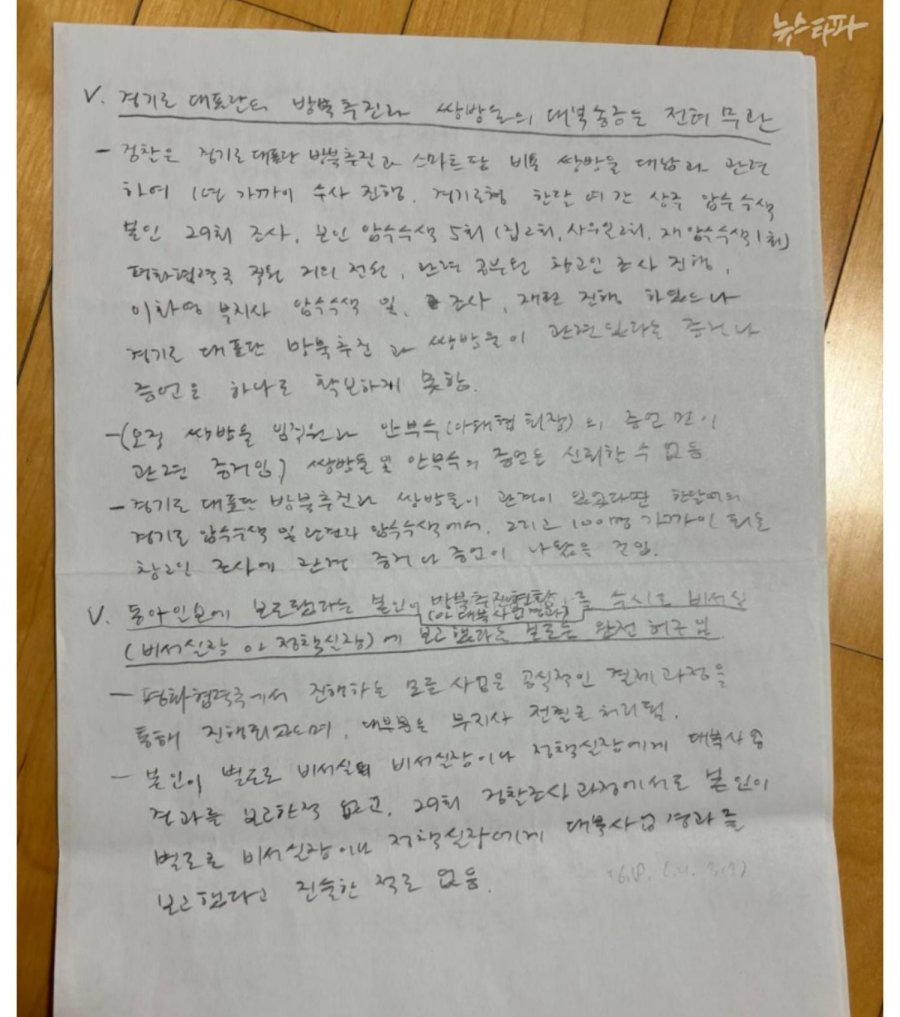 뉴스타파
V. 경기도 대표단의 방북추진과 쌍방울의 대북송금은 전혀 무관
- 검찰은 경기도 대표단 방북추진과 스마트팜 비용 쌍방울 대납과 관련
하여 1년 가까이 수사 진행. 경기도청 한달 여간 상주 압수수색
본인 29회 조사, 본인 압수수색 5회 (집2회, 사무실2회, 재압수수색1회)
평화협력국 직원 거의 전원, 관련 공무원 참고인 조사 진행,
이화영 부지사 압수수색 및, 조사, 재판 진행 하였으나
경기도 대표단 방북추진 과 쌍방울이 관련있다는 증거나
증언을 하나도 확보하지 못함.
- (오직 쌍방울 임직원과 안부수(아태협 회장)의 증언 만이
관련 증거임) 쌍방울 및 안부수의 증언은 신뢰할 수 없음
- 경기도 대표단 방북추진과 쌍방울이 관계이 있었다면 한달여의
경기도 압수수색 및 관련자 압수수색에서, 그리고 100여명 가까이 되는
참고인 조사에 관련 증거나 증언이 나왔을 것임.
V. 동아일보에 보도됐다는 본인이 방북추진현황 를 수시로 비서실
(이 대북사업경과)
(비서실장 이나 정책실장)에 보고했다는 보도는 완전 허구임
- 평화협력국에서 진행하는 모든 사업은 공식적인 결제과정을
통해 진행되었으며, 대부분은 부지사 전결로 처리됨.
- 본인이 별도로 비서실 비서실장이나 정책실장에게 대북사업
경과를 보고한적 없고, 29회 검찰조사과정에서도 본인이
별도로 비서실장이나 정책실장에게 대북사업경과를
보고했다고 진술한 적도 없음.